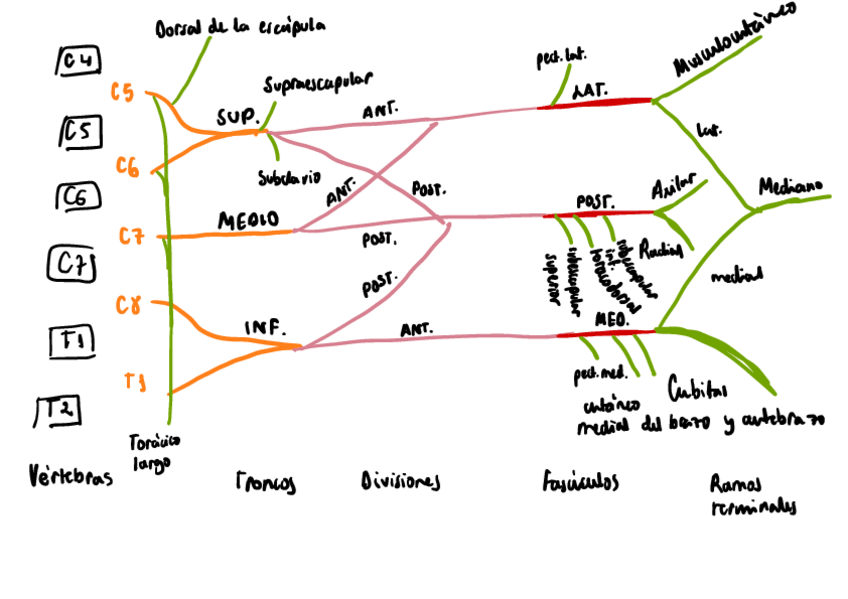 Dorsal de la escápula
C4
C5
Supraescapular
pect. lat.
Musculocutáneo
SUP.
ANT.
LAT.
C5
C6
Subclavio
ANT.
POST.
lat.
C6
Axilar
Mediano
C7
MEDIO
POST.
POST.
Radial
C7
subescapular
superior
toracodorsal
subescapular
inf.
medial
C8
INF.
POST.
ANT.
MED.
T1
T1
pect. med.
Cubital
T2
cutáneo
medial del brazo y antebrazo
Torácico
largo
Vértebras
Troncos
Divisiones
Fascículos
Ramas
terminales